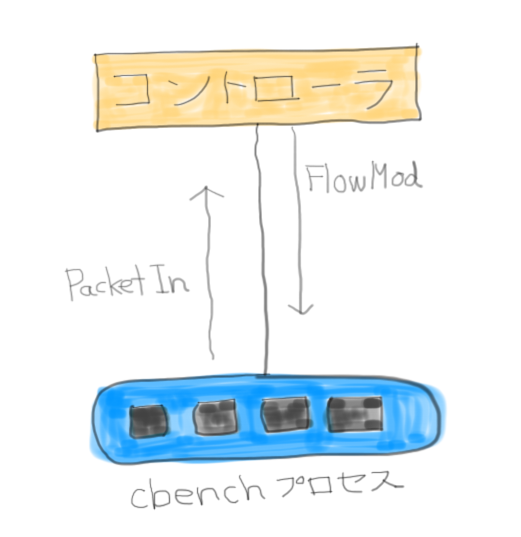 コントローラ
FlowMod
Packet In
cbench プロセス